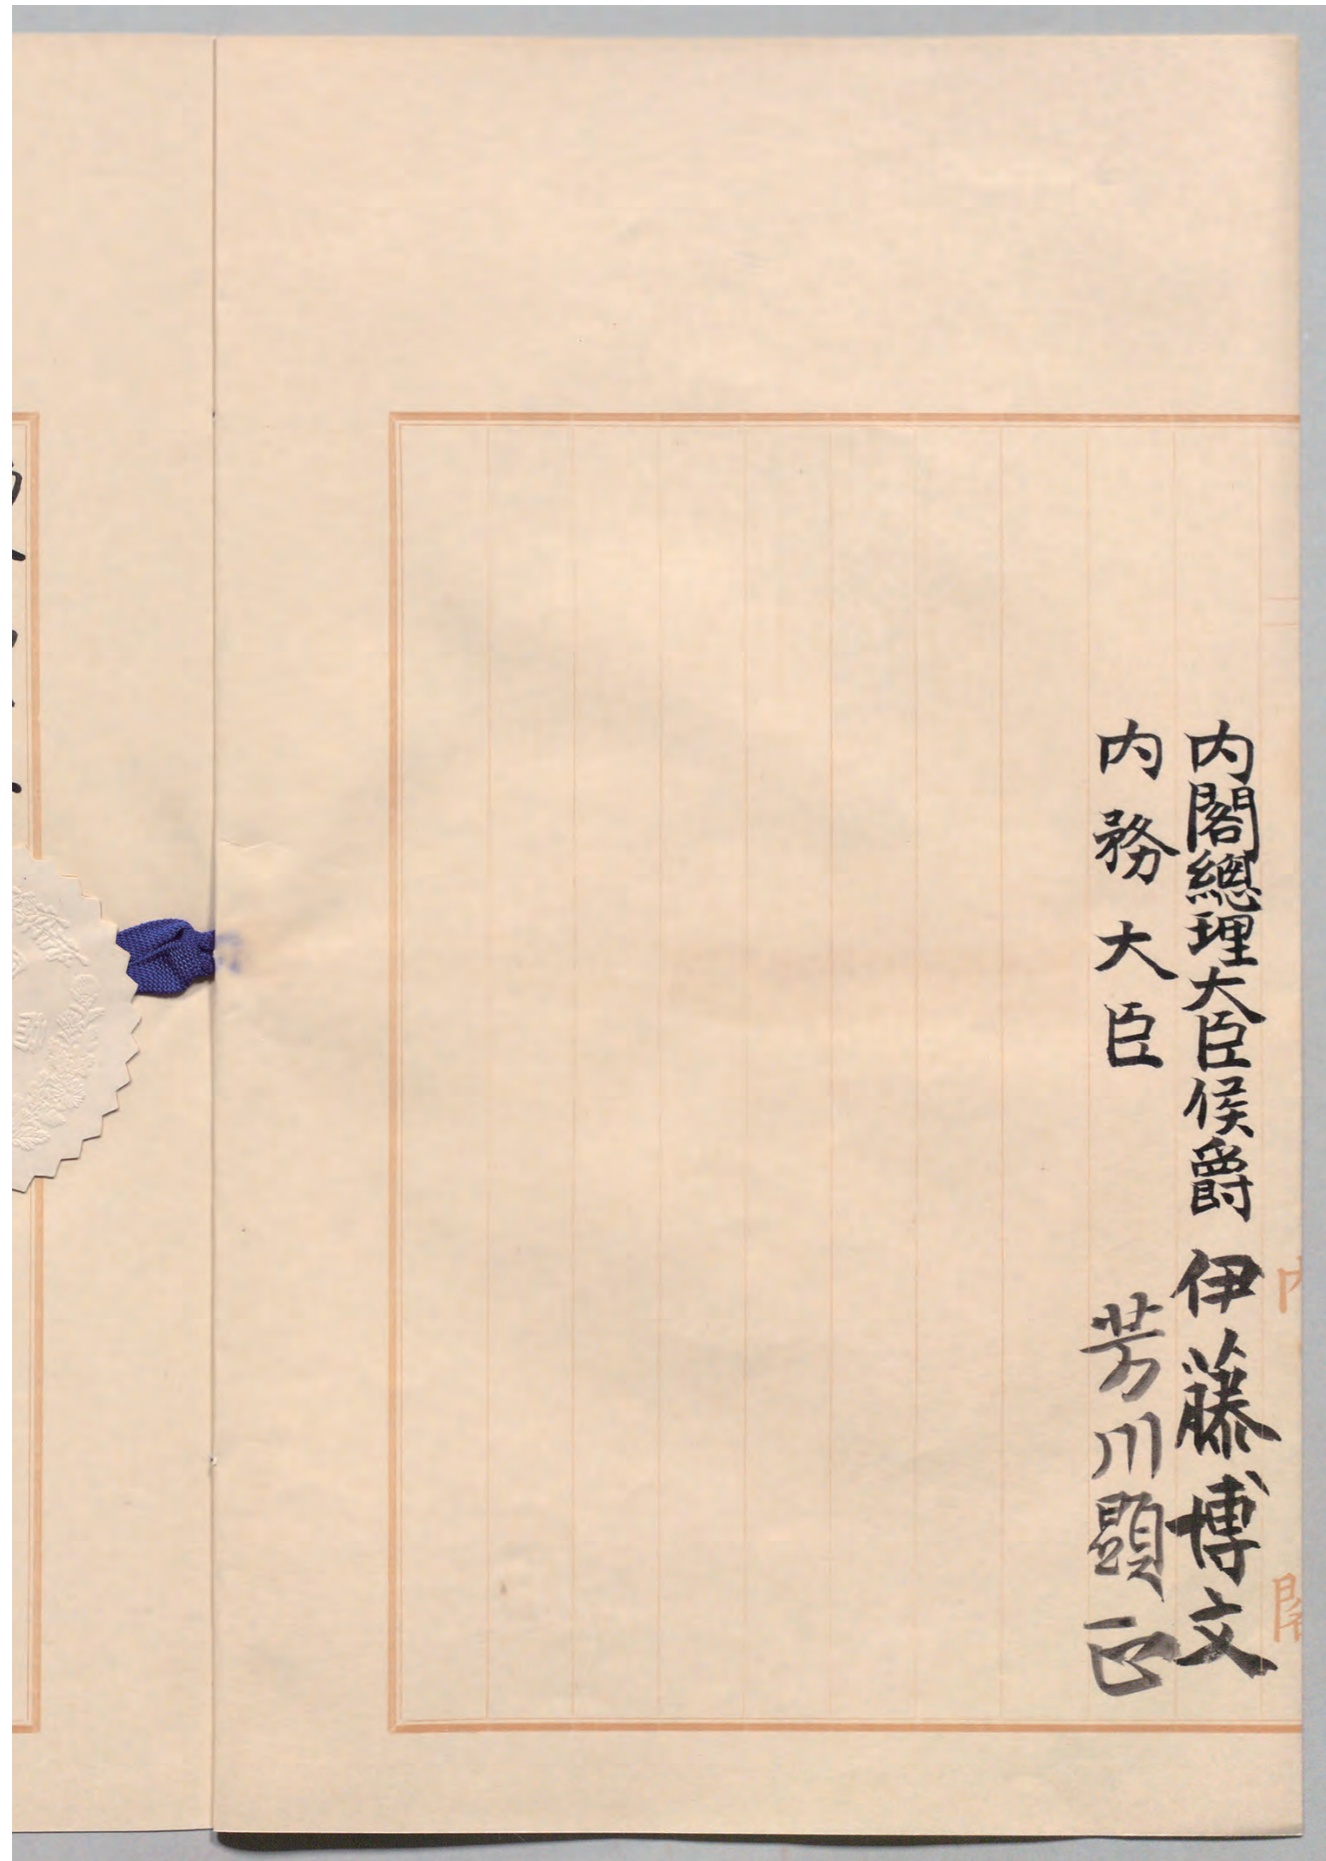 内閣總理大臣侯爵 伊藤博文
内務大臣 芳川顕正